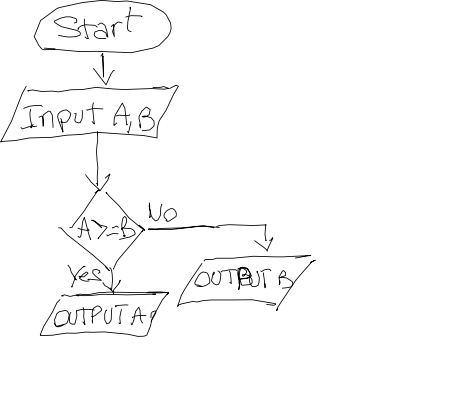 Start
Input A,B
A>=B
No
Yes
OUTPUT A
OUTPUT B